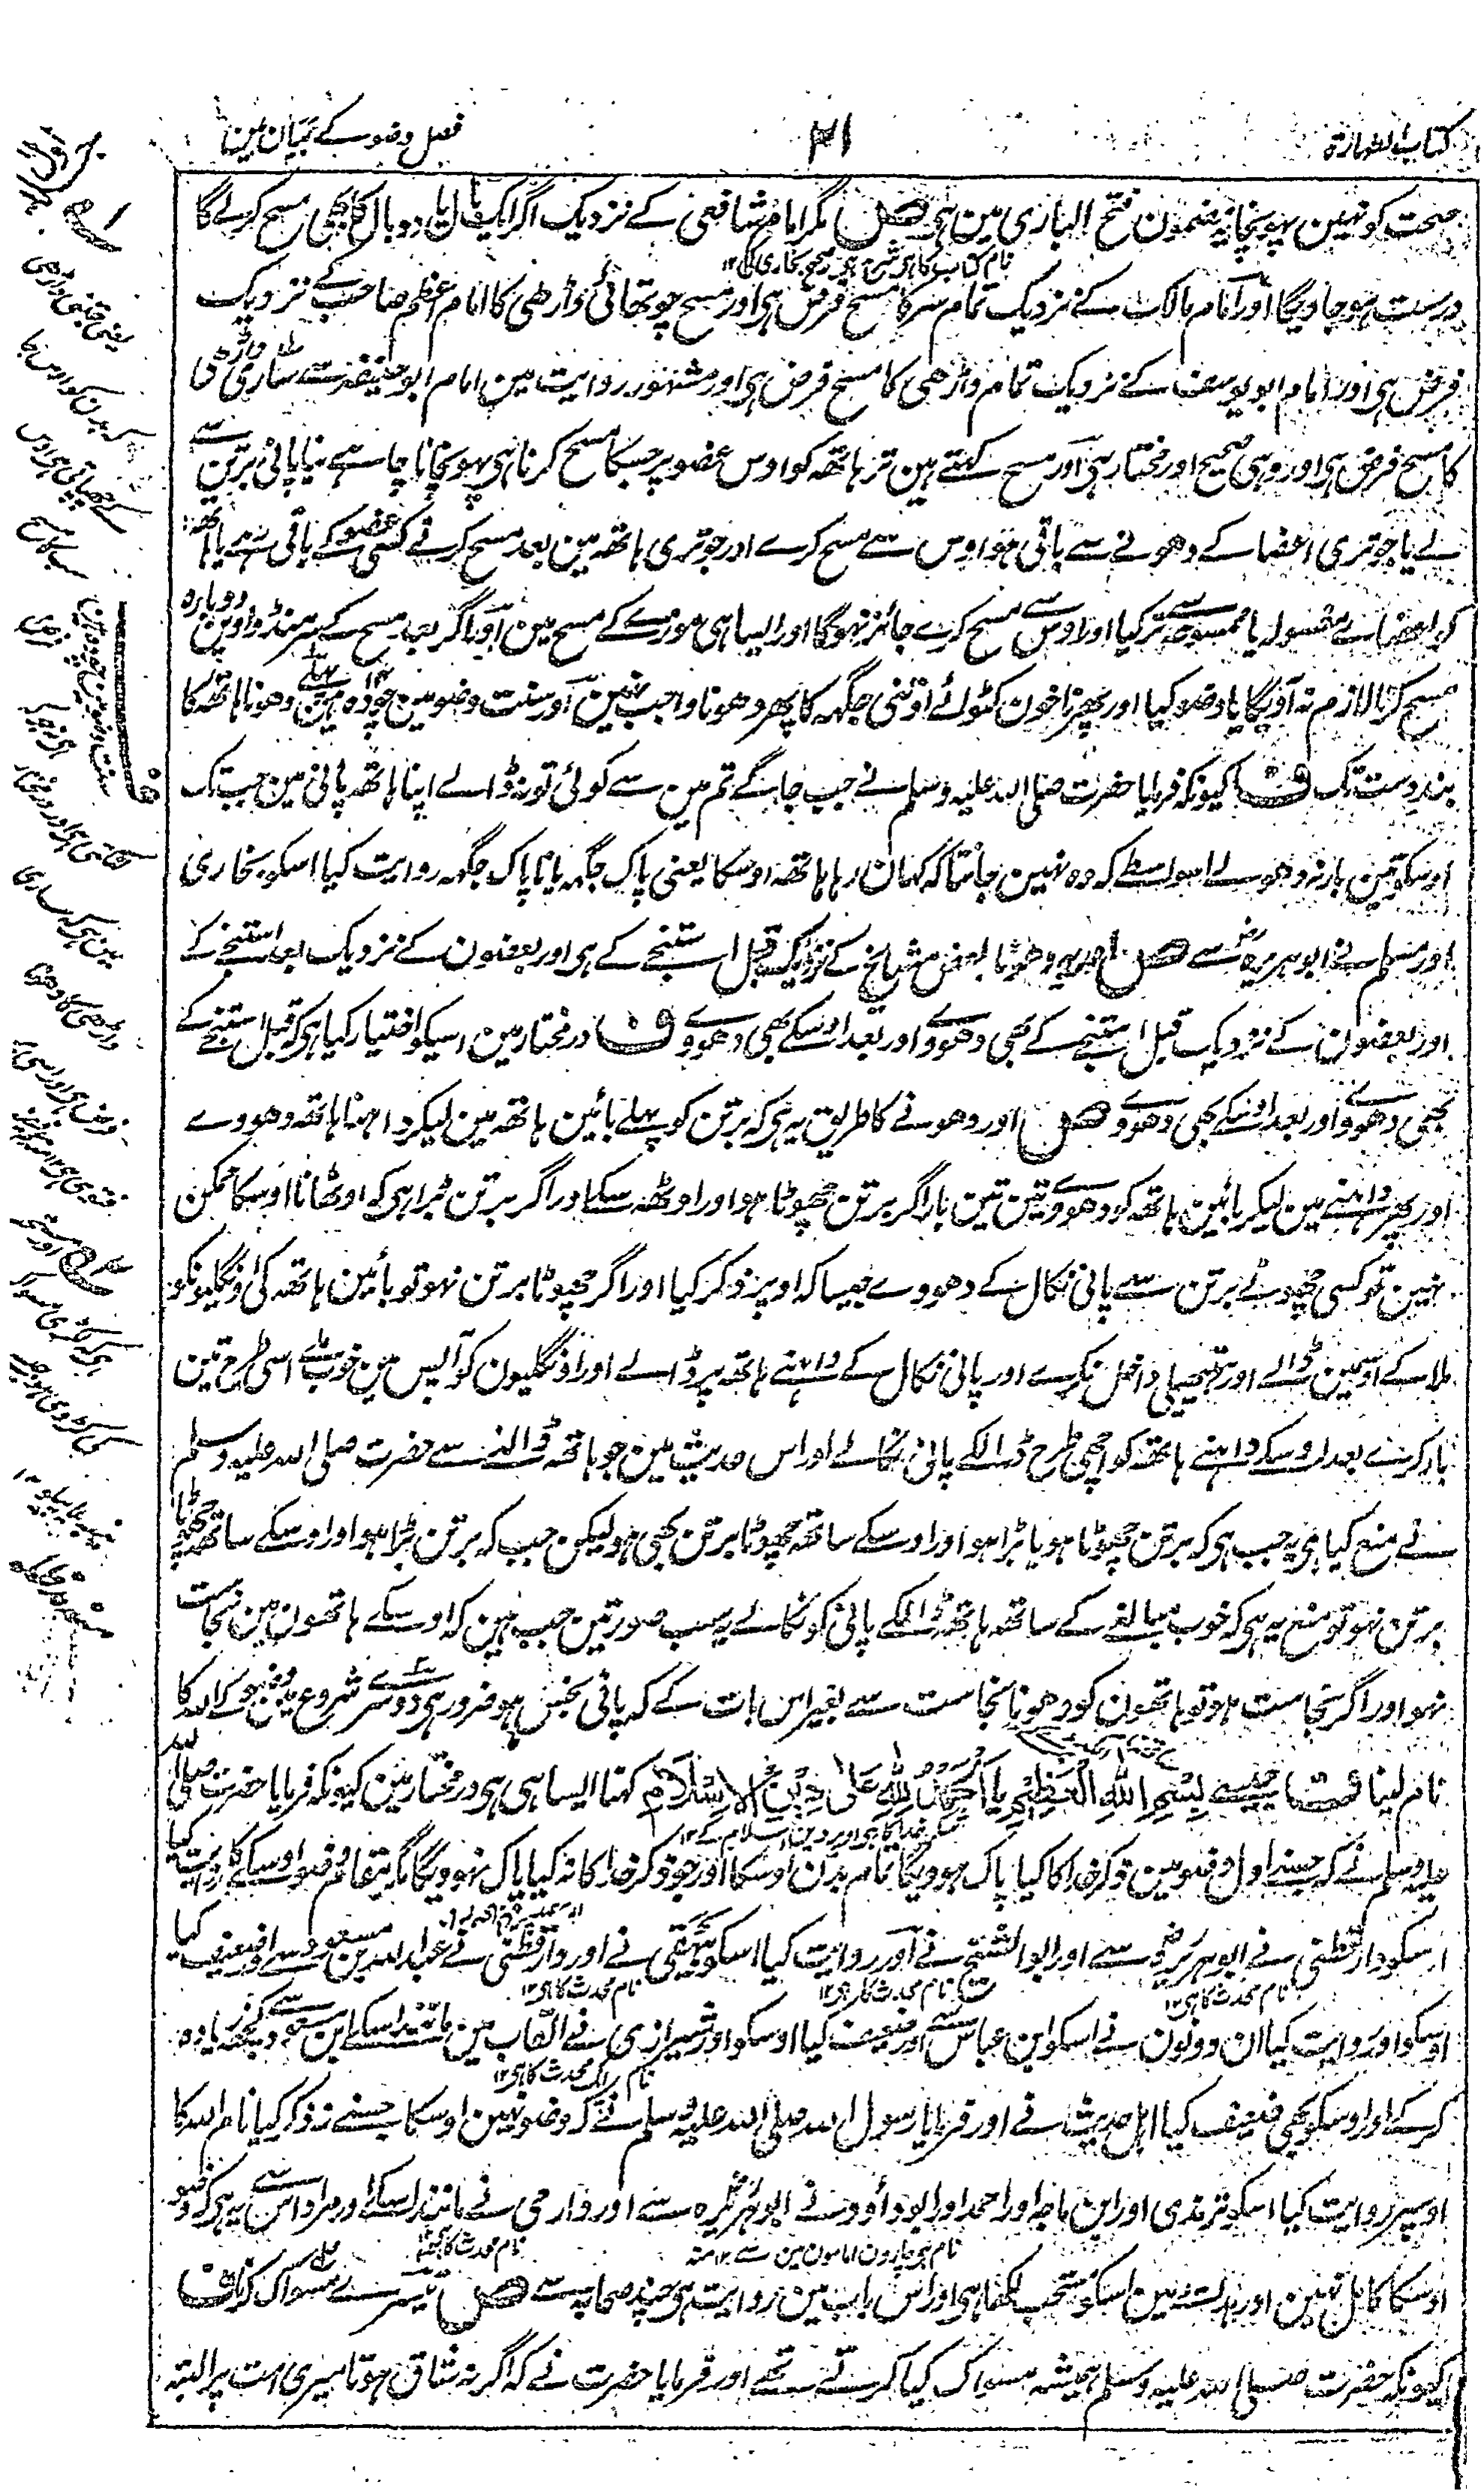 کتاب الطہارۃ
۲۱
فصل وضو کے بیان مین
صحت کو نہین پہونچا یہ مضمون فتح الباری مین ہی ص مگر امام شافعی کے نزدیک اگر ایک بال یا دو بال کا بھی مسح کرلے گا
نام کتاب کا ہی شرح صحیح بخاری کی ۱۲
درست ہو جاویگا اور امام مالک کے نزدیک تمام سر کا مسح فرض ہی اور مسح چوتھائی ڈاڑھی کا امام اعظم صاحب کے نزدیک
فرض ہی اور امام ابو یوسف کے نزدیک تمام ڈاڑھی کا مسح فرض ہی اور مشہور روایت مین امام ابو حنیفہ سے ساری ڈاڑھی
کا مسح فرض ہی اور وہی صحیح اور مختار ہی اور مسح کہتے ہین تر ہاتھ کو اوس عضو پر جسکا مسح کرنا ہی پہونچانا چاہے نیا پانی برتن سے
لے یا جو تری اعضا کے دھونے سے باقی ہو اوس سے مسح کرے اور جو تری ہاتھ مین بعد مسح کرنے کسی عضو کے باقی رہے یا ہاتھ
کو اعضاے مغسولہ یا ممسوحہ سے تر کیا اور اوس سے مسح کرے جائز نہوگا اور ایسا ہی موزے کے مسح مین اور اگر بعد مسح کے سر منڈواوے دوبارہ
مسح کرنا لازم نہ آویگا یا وضو کیا اور پھر ناخون کٹوائے اوتنی جگہہ کا پھر دھونا واجب نہین اور سنت وضو مین چودہ ہین پہلے دھونا ہاتھ کا
بند دست تک ف کیونکہ فرمایا حضرت صلی اللہ علیہ وسلم نے جب جاگے تم مین سے کوئی تو نہ ڈالے اپنا ہاتھ پانی مین جب تک
اوسکو تین بار نہ دھولے اسواسطے کہ وہ نہین جانتا کہ کہان رہا ہاتھ اوسکا یعنی پاک جگہہ یا ناپاک جگہہ روایت کیا اسکو بخاری
اور مسلم نے ابو ہریرہ رض سے ص اور یہ دھونا بعض مشایخ کے نزدیک قبل استنجے کے ہی اور بعضون کے نزدیک بعد استنجے کے
اور بعضون کے نزدیک قبل استنجے کے بھی دھووے اور بعد اوسکے بھی دھووے ف در مختار مین اسیکو اختیار کیا ہی کہ قبل استنجے کے
بھی دھووے اور بعد اوسکے بھی دھووے ص اور دھونے کا طریق یہ ہی کہ برتن کو پہلے بائین ہاتھ مین لیکر داہنا ہاتھ دھووے
اور پھر داہنے مین لیکر بائین ہاتھ کو دھووے تین تین بار اگر برتن چھوٹا ہو اور اوٹھہ سکے اور اگر برتن بڑا ہی کہ اوٹھانا اوسکا ممکن
نہین تو کسی چھوٹے برتن سے پانی نکال کے دھووے جیسا کہ اوپر ذکر کیا اور اگر چھوٹا برتن نہو تو بائین ہاتھ کی اونگلیونکو
ملا کے اوسمین ڈالے اور ہتھیلی داخل نکرے اور پانی نکال کے داہنے ہاتھ پر ڈالے اور اونگلیون کو آپس مین خوب ملے اسی طرح تین
بار کرے بعد اوسکے داہنے ہاتھ کو اچھی طرح ڈالکے پانی نکالے اور اس حدیث مین جو ہاتھ ڈالنے سے حضرت صلی اللہ علیہ وسلم
نے منع کیا ہی یہ جب ہی کہ برتن چھوٹا ہو یا بڑا ہو اور اوسکے ساتھ چھوٹا برتن بھی ہو لیکن جب کہ برتن بڑا ہو اور اوسکے ساتھ چھوٹا
برتن نہو تو منع یہ ہی کہ خوب مبالغے کے ساتھ ہاتھ ڈالکے پانی کو نکالے یہ سب صورتین جب ہین کہ اوسکے ہاتھون مین نجاست
نہو اور اگر نجاست ہو تو ہاتھون کو دھونا نجاست سے بغیر اس بات کے کہ پانی نجس ہو ضرور ہی دوسرے شروع وضو مین اللہ کا
نام لینا ف جیسے بِسْمِ اللّٰهِ الْعَظِیْمِ یا اَلْحَمْدُ لِلّٰهِ عَلٰی دِیْنِ الْاِسْلَامِ کہنا ایسا ہی ہی در مختار مین کیونکہ فرمایا حضرت صلی اللہ
شکر خدا کا ہی اوپر دین اسلام کے ۱۲
علیہ وسلم نے کہ جسنے اول وضو مین ذکر خدا کا کیا پاک ہوویگا تمام بدن اوسکا اور جو ذکر خدا کا نہ کیا پاک نہوویگا مگر مقام وضو اوسکے کا روایت کیا
اسکو دارقطنی نے ابو ہریرہ رض سے اور ابو الشیخ نے اور روایت کیا اسکو بیہقی نے اور دارقطنی نے عبد اللہ بن مسعود سے اور ضعیف کیا
نام محدث کا ہی ۱۲
نام محدث کا ہی ۱۲
نام محدث کا ہی ۱۲
اوسکو اور روایت کیا ان دونون نے اسکو ابن عباس سے اور ضعیف کیا اوسکو اور شیرازی نے القاب مین مانند اسکے ابن مسعود سے کچھ زیادہ
نام ایک محدث کا ہی ۱۲
کر کے اور اوسکو بھی ضعیف کیا اہل حدیث نے اور فرمایا رسول اللہ صلی اللہ علیہ وسلم نے کہ وضو نہین اوسکا جسنے نہ ذکر کیا نام اللہ کا
اوسپر روایت کیا اسکو ترمذی اور ابن ماجہ اور احمد اور ابو داؤد نے ابو ہریرہ سے اور دارمی نے مانند اسکے اور مراد اس سے یہ ہی کہ وضو
نام ہی چارون امامون مین سے ۱۲ منہ
نام محدث کا ہی
اوسکا کامل نہین اور ہدایہ مین اسکو مستحب لکھا ہی اور اس باب مین روایت ہی چند صحابہ سے ص تیسرے مسواک کرنا ف
کیونکہ حضرت صلی اللہ علیہ وسلم ہمیشہ مسواک کیا کرتے تھے اور فرمایا حضرت نے کہ اگر نہ شاق ہوتا میری امت پر البتہ
یعنی جتنی ڈاڑھی